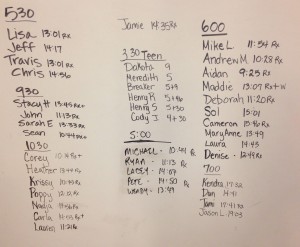 530
Lisa 13:01 Rx
Jeff 14:17
Travis 13:01 Rx
Chris 14:56
930
Stacy H 13:45 Rx+
John 11:13 Rx
Sarah E 13:33 Rx
Sean 10:44 Rx+
1030
Corey Rx+
Heather
Krissy
Poppy
Nadia
Carla
Lauren
Jamie 14:35 Rx
3:30 Teen
Dakota 9
Meredith 5
Breaker 5+9
Henry R 5+46
Henry S 5+30
Cody J 4+30
5:00
MICHAEL - 10:44 Rx
RYAN - 11:13 Rx
LACEY - 14:07
PETE - 14:50 Rx
13:49
600
Mike L 11:54 Rx
Andrew M 10:28 Rx
Aidan 9:25 Rx
Maddie 13:07 Rx+W
Deborah 11:20 Rx
Sol 15:01
Cameron Rx
MaryAnne 13:49
Laura 14:43
Denise 12:49 Rx
700
Kendra 17:12 Rx
Dan
Tami 17:41 Rx
Jason L